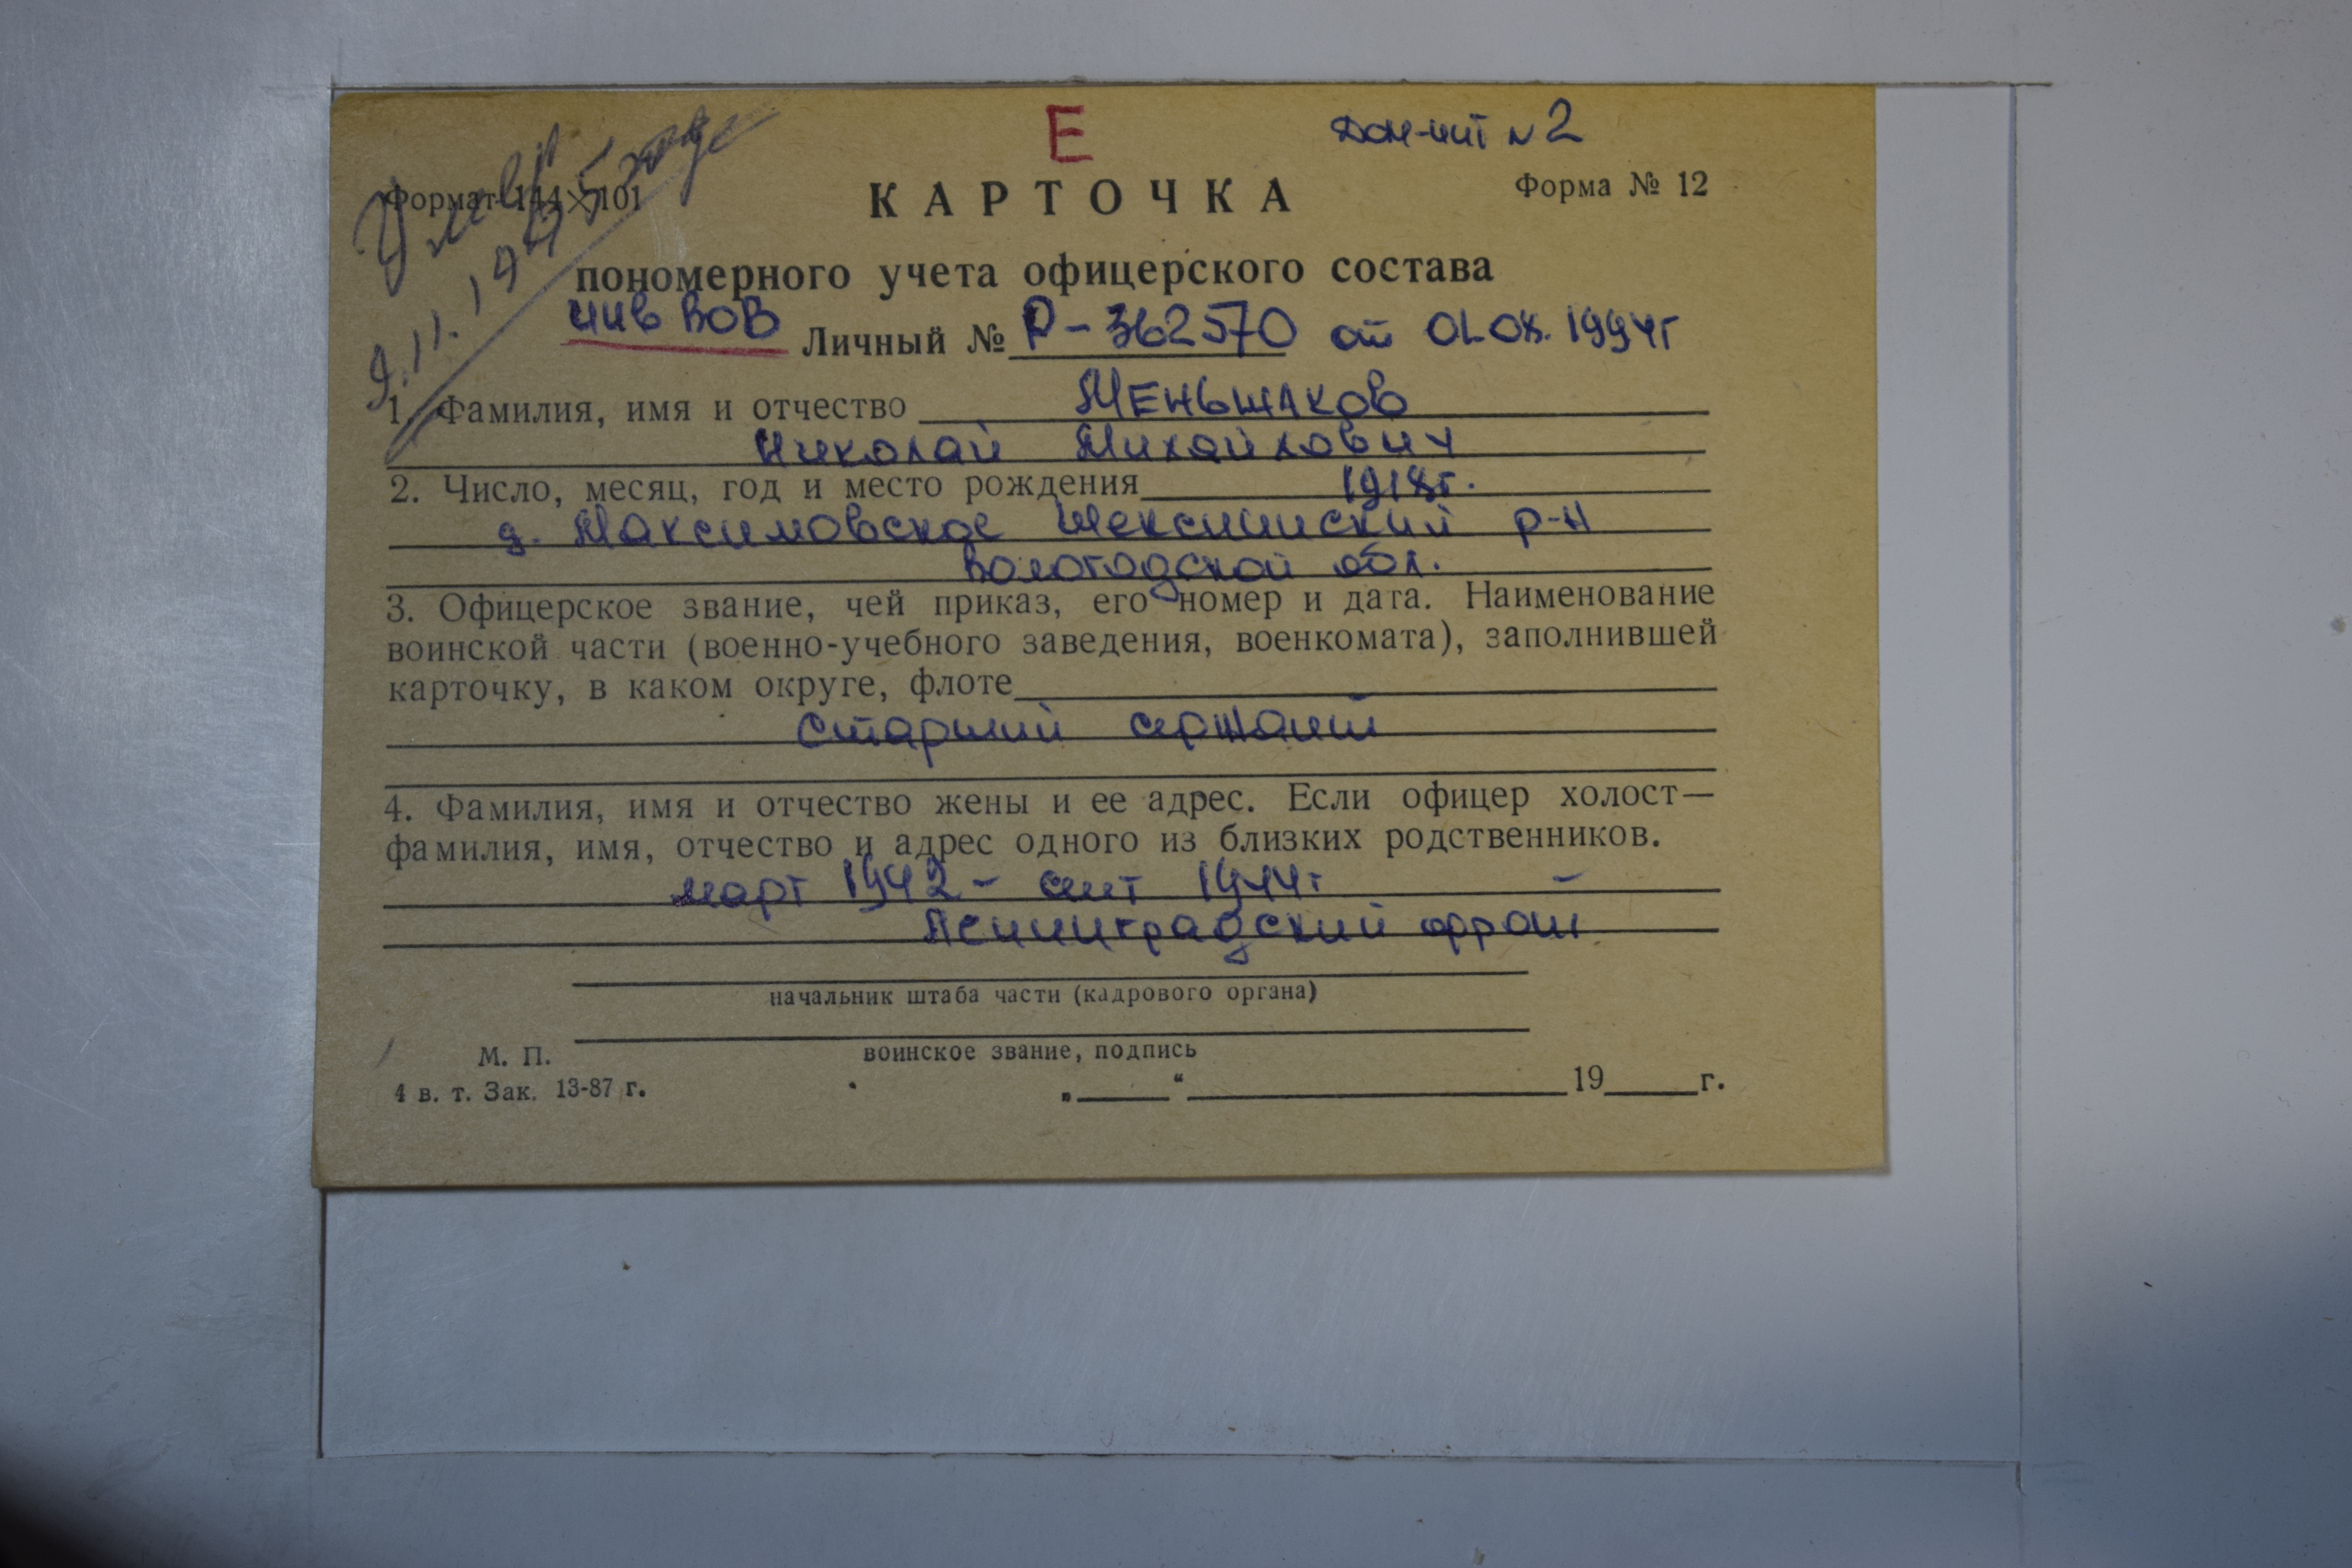 Е
дом-инт № 2
Формат 144×101
Форма № 12
Умер
9.11.1995 году
КАРТОЧКА
пономерного учета офицерского состава
инв ВОВ Личный № Р-362570 от 01.08.1994г
1. Фамилия, имя и отчество Меньшаков
Николай Михайлович
2. Число, месяц, год и место рождения 1918г.
д. Максимовское Шекснинский р-н
Вологодской обл.
3. Офицерское звание, чей приказ, его номер и дата. Наименование
воинской части (военно-учебного заведения, военкомата), заполнившей
карточку, в каком округе, флоте
Старший сержант
4. Фамилия, имя и отчество жены и ее адрес. Если офицер холост—
фамилия, имя, отчество и адрес одного из близких родственников.
март 1942 - сент 1944г
Ленинградский фронт
начальник штаба части (кадрового органа)
М. П.
воинское звание, подпись
4 в. т. Зак. 13-87 г.
„ “ 19 г.